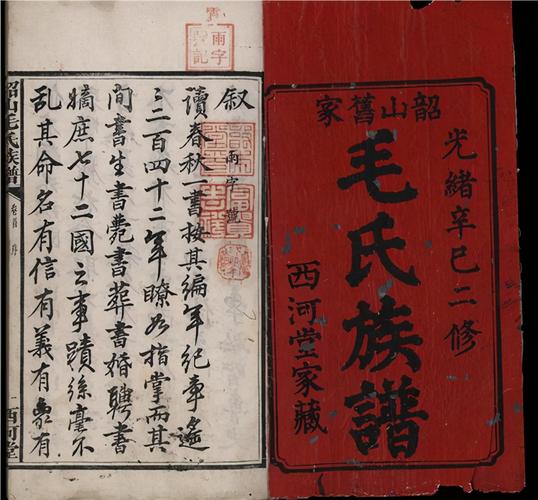 韶山舊家
光緒辛巳二修
毛氏族譜
西河堂家藏
叙
雨字號
讀春秋一書按其編年紀事遙
々二百四十二年瞭如指掌而其
間書生書薨書葬書婚聘書
嫡庶七十二國之事蹟絲毫不
亂其命名有信有義有象有
韶山毛氏族譜
卷首
序
一
西河堂
雨字